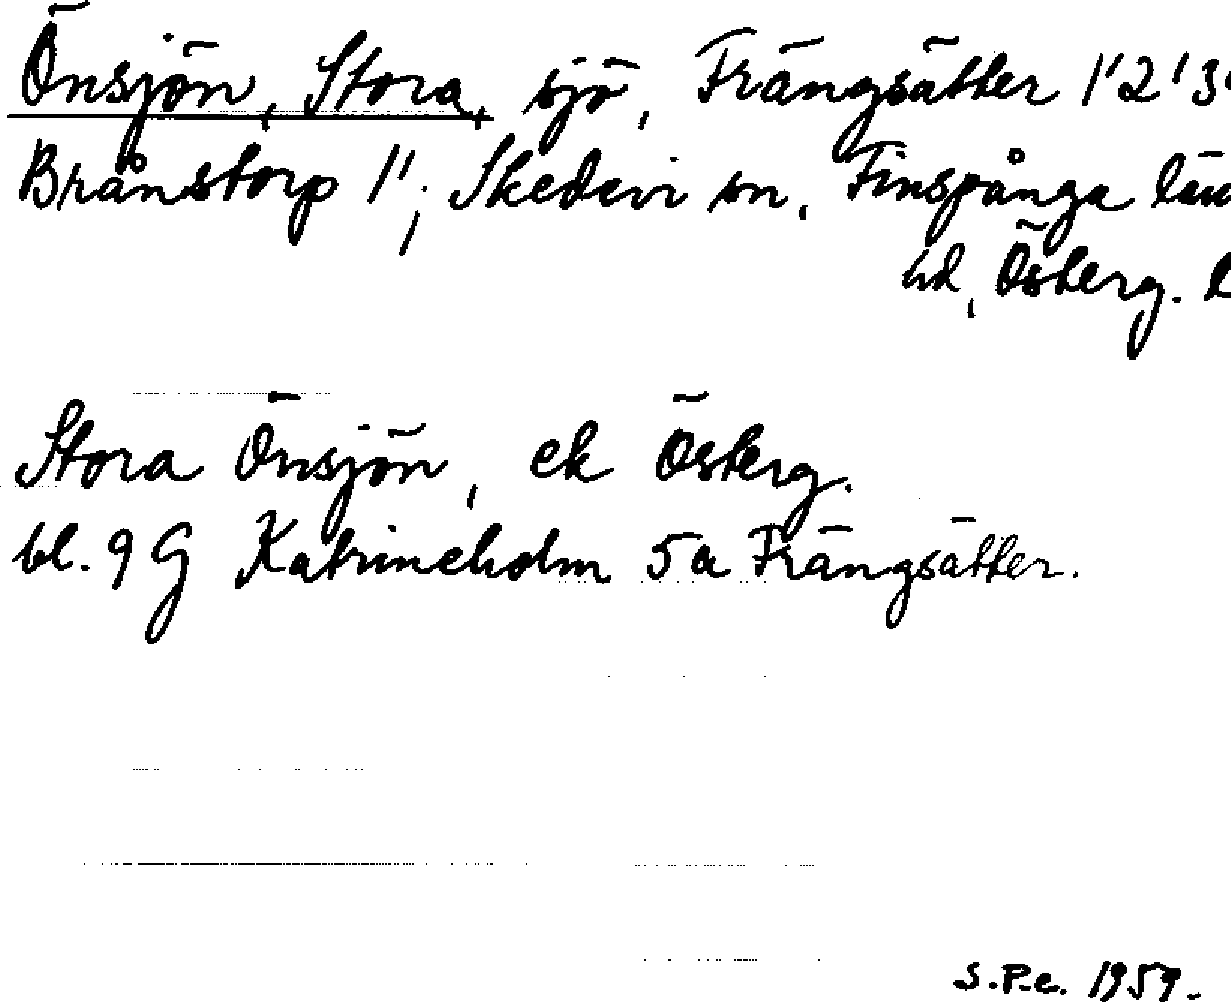 Önsjön, Stora, sjö, Frängsätter 1'2'3
Brånstorp 1'; Skedevi sn, Finspånga län
hd, Österg. l
Stora Önsjön, ek Österg.
bl. 9 G Katrineholm 5a Frängsätter.
S.P.e. 1959.